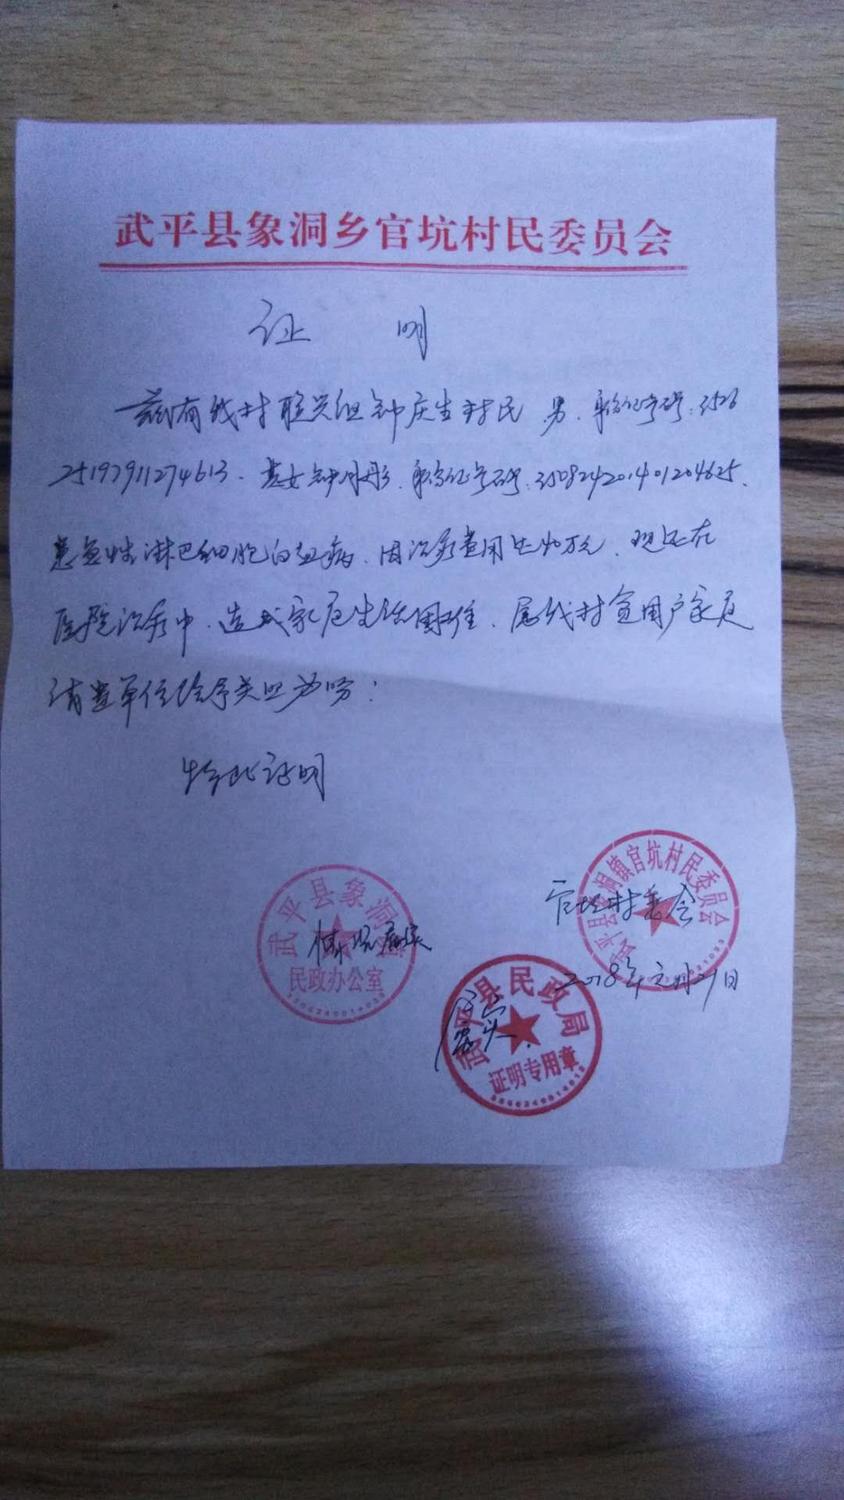 武平县象洞乡官坑村民委员会
证 明
兹有我村联兴组钟庆生村民,男,身份证号码:3526
25197911274613.其女钟月彤,身份证号码:350824201401204625,
患急性淋巴细胞白血病,因治疗费用达40万元,现还在
医院治疗中,造成家庭生活困难,属我村贫困户家庭
请贵单位给予关照为盼:
特此证明
官坑村委会
2018年元月21日
武平县象洞镇官坑村民委员会
武平县象洞
民政办公室
情况属实
武平县民政局
证明专用章
属实